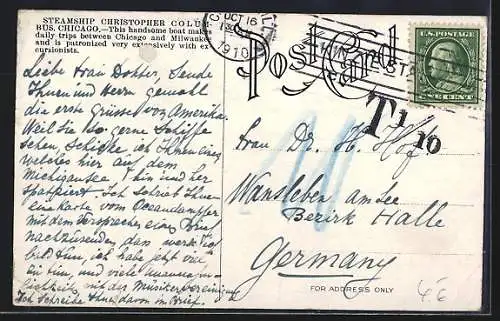 STEAMSHIP CHRISTOPHER COLUM-
BUS, CHICAGO.—This handsome boat makes
daily trips between Chicago and Milwaukee
and is patronized very extensively with ex-
cursionists.
Liebe Frau Dokter, Sende
Ihnen und Herrn Gemahl
die erste Grüsse von Amerika.
Weil Sie so gerne Schiffe
sehen, Schicke ich Ihnen eines
welches hier auf dem
Michigansee hin und her
spatziert. Ich schrieb Ihnen
eine Karte vom Oceandampfer
mit dem Versprechen einen Brief
nachzusenden das werde ich
bald tun, ich habe jetzt viel
zu tun, und viele
mit der Musikervereinigung
Ich Schreibe Ihnen davon im Brief.
OCT 16
1910
Post Card
U.S. POSTAGE
ONE CENT
T 1/10
10
Frau Dr. H. Hof
Wansleben am See
Bezirk Halle
Germany
FOR ADDRESS ONLY